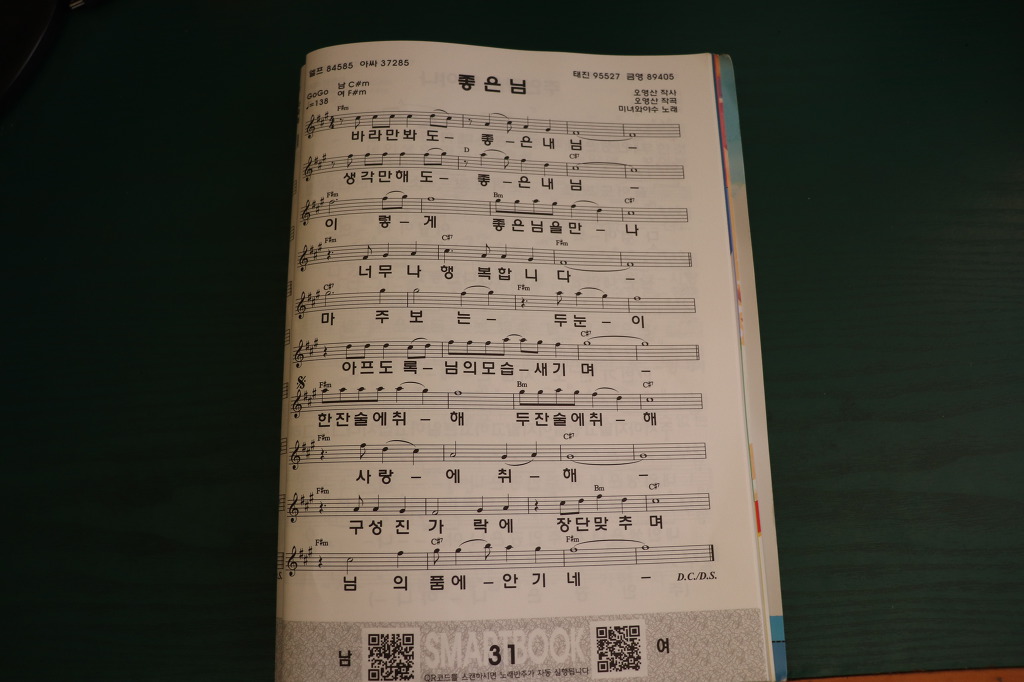 엘프 84585 아싸 37285
태진 95527 금영 89405
좋은님
GoGo 남 C#m
♩=138 여 F#m
오영산 작사
오영산 작곡
미녀와야수 노래
F#m
바라만봐 도– 좋–은내님 –
D C#7
생각만해 도– 좋–은내님 –
F#m Bm C#7
이 렇–게 좋은님을만–나
F#m C#7 F#m
너무나행 복합니다 –
C#7 F#m
마 주보는– 두눈–이
C#7
아프도록–님의모습–새기며 –
F#m Bm C#7
한잔술에취–해 두잔술에취–해
F#m C#7
사랑–에 취–해 –
F#m Bm C#7
구성진가락에 장단맞추며
F#m C#7 F#m
님 의품에–안기네 – D.C./D.S.
남 SMARTBOOK 31 여
QR코드를 스캔하시면 노래반주가 자동 실행됩니다